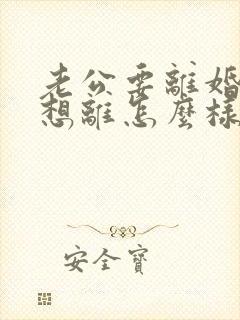 老公要離婚
想離怎麼樣
安全寶